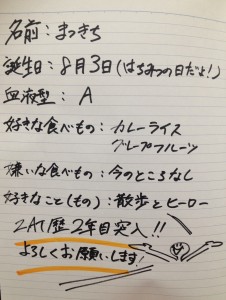 名前：まっきち
誕生日：8月3日(はちみつの日だよ!)
血液型：A
好きな食べもの：カレーライス
グレープフルーツ
嫌いな食べもの：今のところなし
好きなこと(もの)：散歩とヒーロー
ZAT歴2年目突入!!
よろしくお願いします!